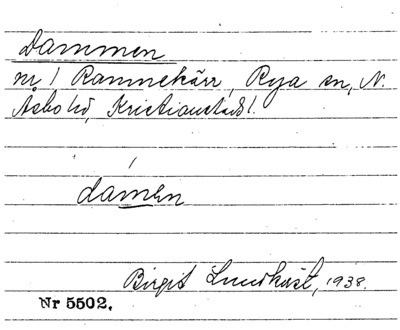 Dammen
nr 1 Ramnekärr, Rya sn, N.
Åsbo hd, Kristianstads l.
dámen
Birgit Lundkvist, 1938.
Nr 5502.